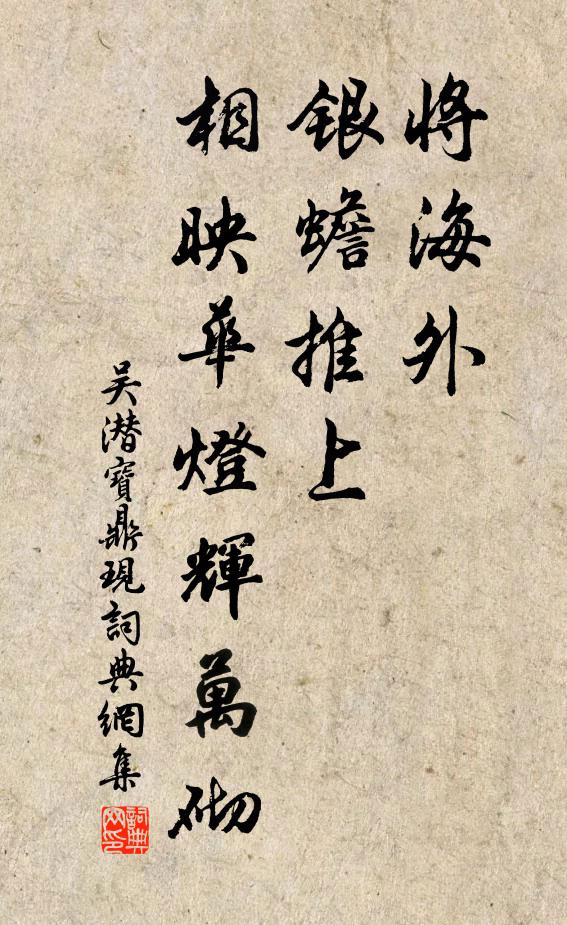 將海外
銀蟾推上
相映華燈輝萬砌
吴潛寶鼎現詞典網集
詞典
网印